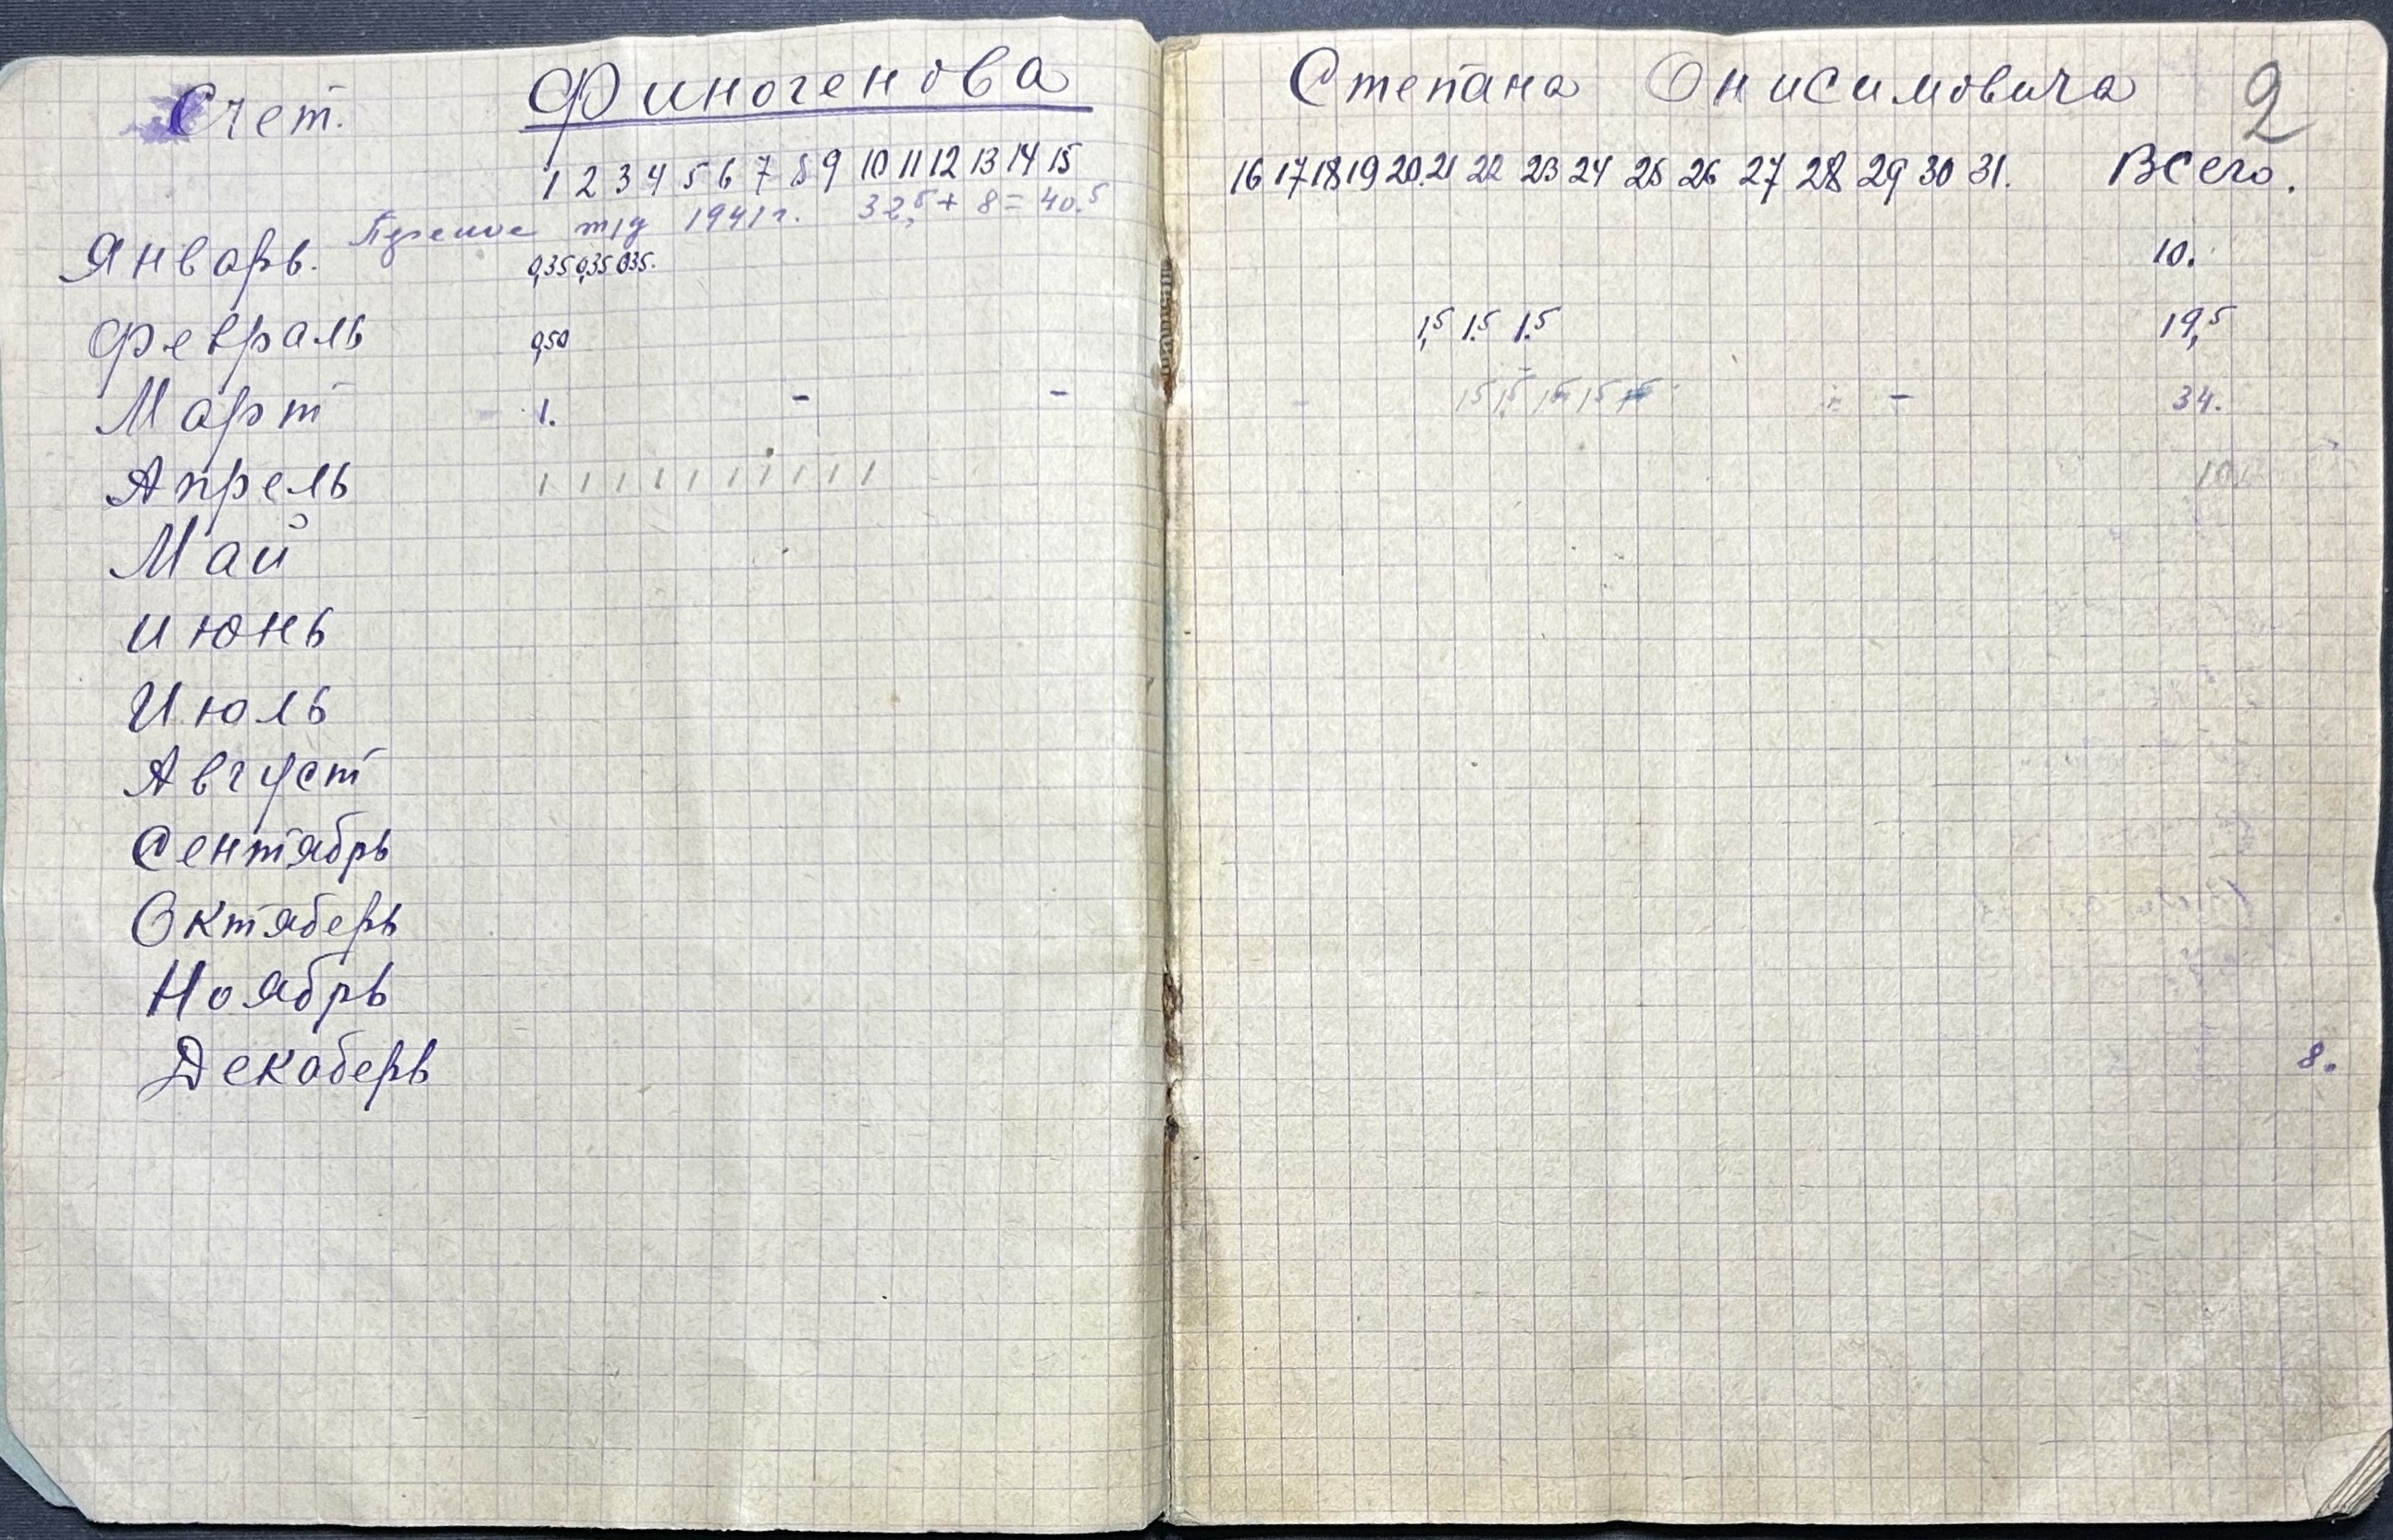 Счет. Финогенова Степана Онисимовича 2
1 2 3 4 5 6 7 8 9 10 11 12 13 14 15 16 17 18 19 20. 21 22 23 24 25 26 27 28 29 30 31. Всего.
т/д 1941 г. 32,5 + 8 = 40.5
Январь. 0,35 0,35 035. 10.
Февраль 0,50 1,5 1.5 1.5 19,5
Март 1. - - 15 15 15 15 - 34.
Апрель 1 1 1 1 1 1 1 1 1 1
Май
июнь
Июль
Август
Сентябрь
Октяберь
Ноябрь
Декаберь 8.